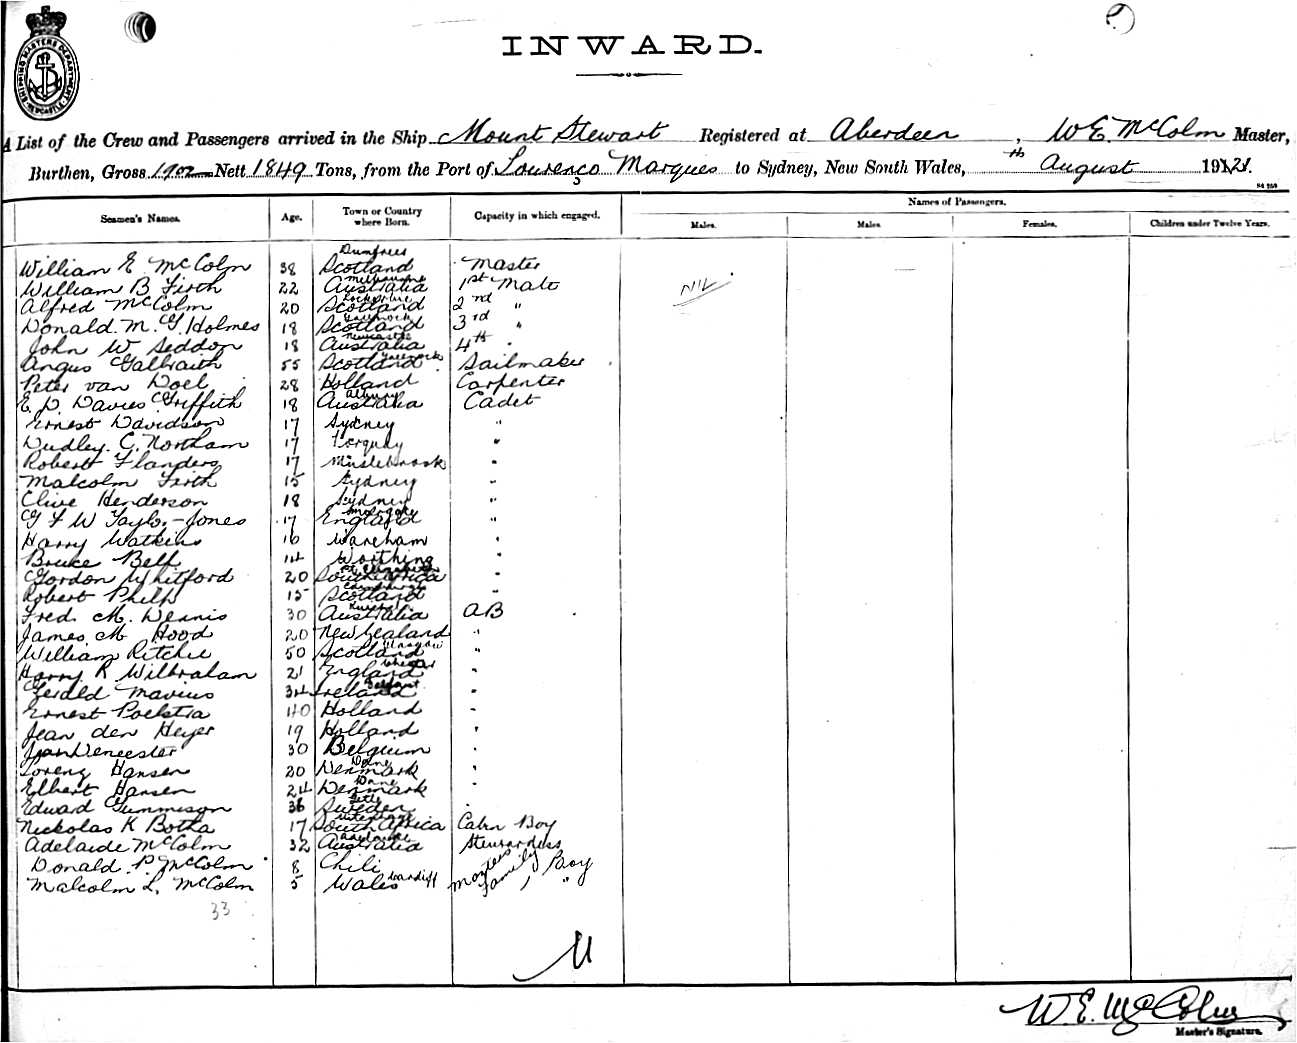 SHIPPING MASTERS DEPARTMENT NEWCASTLE
INWARD.
A List of the Crew and Passengers arrived in the Ship Mount Stewart Registered at Aberdeen, W E McColm Master,
Burthen, Gross 1902 Nett 1849 Tons, from the Port of Lourenco Marques to Sydney, New South Wales, th August 1921.
Names of Passengers.
Seamen's Names. Age. Town or Country where Born. Capacity in which engaged. Males. Males. Females. Children under Twelve Years.
William E McColm 38 Dumfries Scotland Master
William B Firth 22 Melbourne Australia 1st Mate NIL
Alfred McColm 20 Lockerbie Scotland 2nd "
Donald. M. G. Holmes 18 Scotland 3rd "
John W Seddon 18 Newcastle Australia 4th "
Angus Galbraith 55 Scotland Sailmaker
Peter van Doel 28 Holland Carpenter
E. D. Davies Griffith 18 Albury Australia Cadet
Ernest Davidson 17 Sydney "
Dudley. C. Northam 17 Torquay "
Robert Flanders 17 Muslebrook "
Malcolm Firth 15 Sydney "
Clive Henderson 18 Sydney "
G F W Taylor-Jones 17 England "
Harry Watkins 16 Wareham "
Bruce Bell 14 Worthing "
Gordon Whitford 20 Pt Elizabeth South Africa "
Robert Philp 15 Scotland "
Fred. M. Dennis 30 Australia AB
James M Hood 20 New Zealand "
William Ritchie 50 Scotland Glasgow "
Harry R Wilbraham 21 England "
Gerald Mavius 34 Ireland Belfast "
Ernest Poelstra 40 Holland "
Jean den Heyer 19 Holland "
30 Belgium "
Lorenz Hansen 20 Denmark "
Elbert Hansen 24 Denmark "
Edward Gunmeson 36 Sweden "
Nickolas K Botha 17 South Africa Cabin Boy
Adelaide McColm 32 Adelaide Australia Stewardess
Donald. P. McColm 8 Chili Masters Family Boy
Malcolm L. McColm 5 Wales Cardiff " "
33
W.E. McColm
Master's Signature.